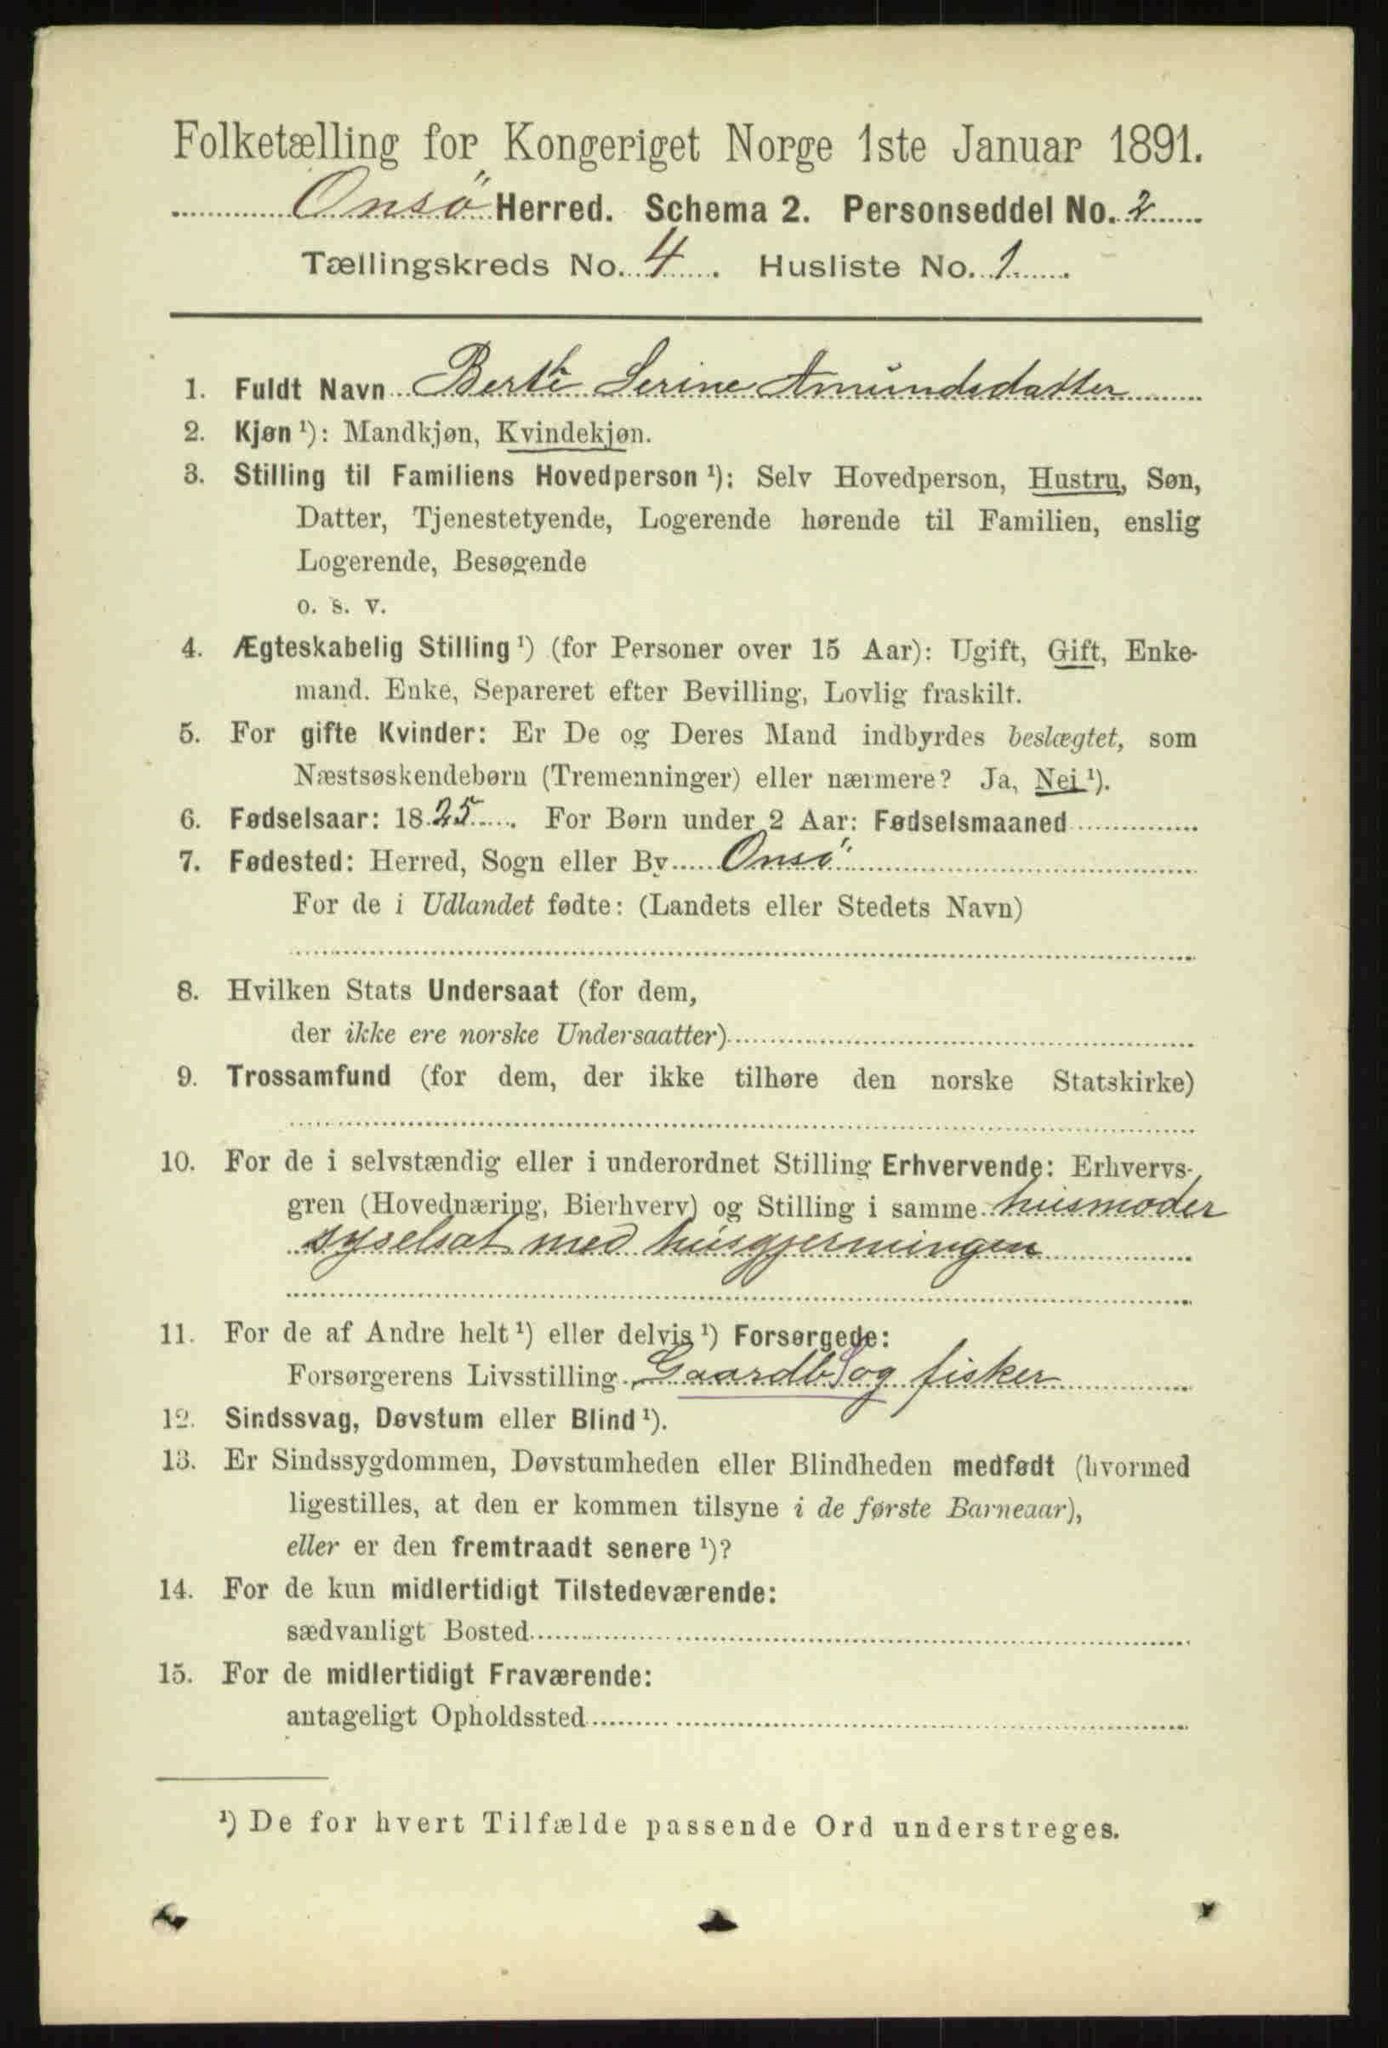 Folketælling for Kongeriget Norge 1ste Januar 1891.
Onsö Herred. Schema 2. Personseddel No. 2
Tællingskreds No. 4. Husliste No. 1.
1. Fuldt Navn Berte Serine Amundsdatter
2. Kjøn ¹): Mandkjøn, Kvindekjøn.
3. Stilling til Familiens Hovedperson ¹): Selv Hovedperson, Hustru, Søn,
Datter, Tjenestetyende, Logerende hørende til Familien, enslig
Logerende, Besøgende
o. s. v.
4. Ægteskabelig Stilling ¹) (for Personer over 15 Aar): Ugift, Gift, Enke-
mand. Enke, Separeret efter Bevilling, Lovlig fraskilt.
5. For gifte Kvinder: Er De og Deres Mand indbyrdes beslægtet, som
Næstsøskendebørn (Tremenninger) eller nærmere? Ja, Nei ¹).
6. Fødselsaar: 1825. For Børn under 2 Aar: Fødselsmaaned
7. Fødested: Herred, Sogn eller By Onsö
For de i Udlandet fødte: (Landets eller Stedets Navn)
8. Hvilken Stats Undersaat (for dem,
der ikke ere norske Undersaatter)
9. Trossamfund (for dem, der ikke tilhøre den norske Statskirke)
10. For de i selvstændig eller i underordnet Stilling Erhvervende: Erhvervs-
gren (Hovednæring, Bierhverv) og Stilling i samme husmoder
syselsat med husgjerningen
11. For de af Andre helt ¹) eller delvis ¹) Forsørgede:
Forsørgerens Livsstilling Gaardb S og fisker
12. Sindssvag, Døvstum eller Blind ¹).
13. Er Sindssygdommen, Døvstumheden eller Blindheden medfødt (hvormed
ligestilles, at den er kommen tilsyne i de første Barneaar),
eller er den fremtraadt senere ¹)?
14. For de kun midlertidigt Tilstedeværende:
sædvanligt Bosted
15. For de midlertidigt Fraværende:
antageligt Opholdssted
¹) De for hvert Tilfælde passende Ord understreges.